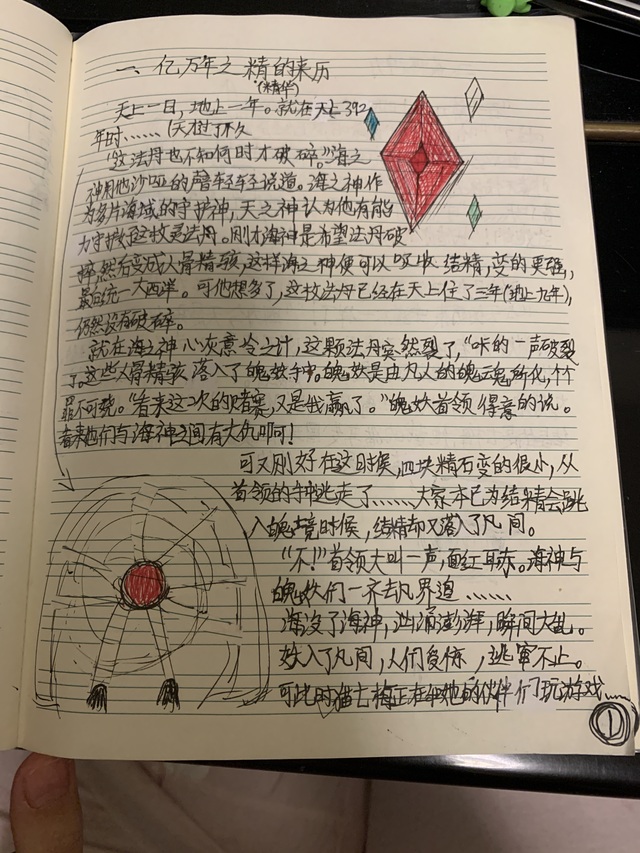 一、亿万年之精的来历
(精华)
天上一日，地上一年。就在天上392
年时……(天树)不久
"这法丹也不知何时才破碎。"海之
神用他沙哑的声轻轻说道。海之神作
为多片海域的守护神，天之神认为他有能
力守护这枚灵法丹。刚才海神是希望法丹破
碎然后变成人骨精骇，这样海之神便可以吸收结精，变的更强，
最后统一大西洋。可他想多了，这枚法丹已经在天上住了三年(地上九年)，
仍然没有破碎。
就在海之神心灰意冷之计，这颗法丹突然裂了，"咔的一声破裂
了。这些人骨精骇落入了魄妖手中。魄妖是由凡人的魄云鬼所化，个个
罪不可晓。"看来这一次的赌赛，又是我赢了。"魄妖首领得意的说。
看来他们与海神之间有大仇啊！
可又刚好在这时候，四块精石变的很小，从
首领的手中逃走了……大家本已为结精会跳
入魄境时候，结精却又落入了凡间。
"不！"首领大叫一声，面红耳赤。海神与
魄妖们一齐去凡界追……
海没了海神，汹涌澎湃，瞬间大乱。
妖入了凡间，人们受惊，逃窜不止。
可此时猫七梅正在和她的伙伴们玩游戏……
1